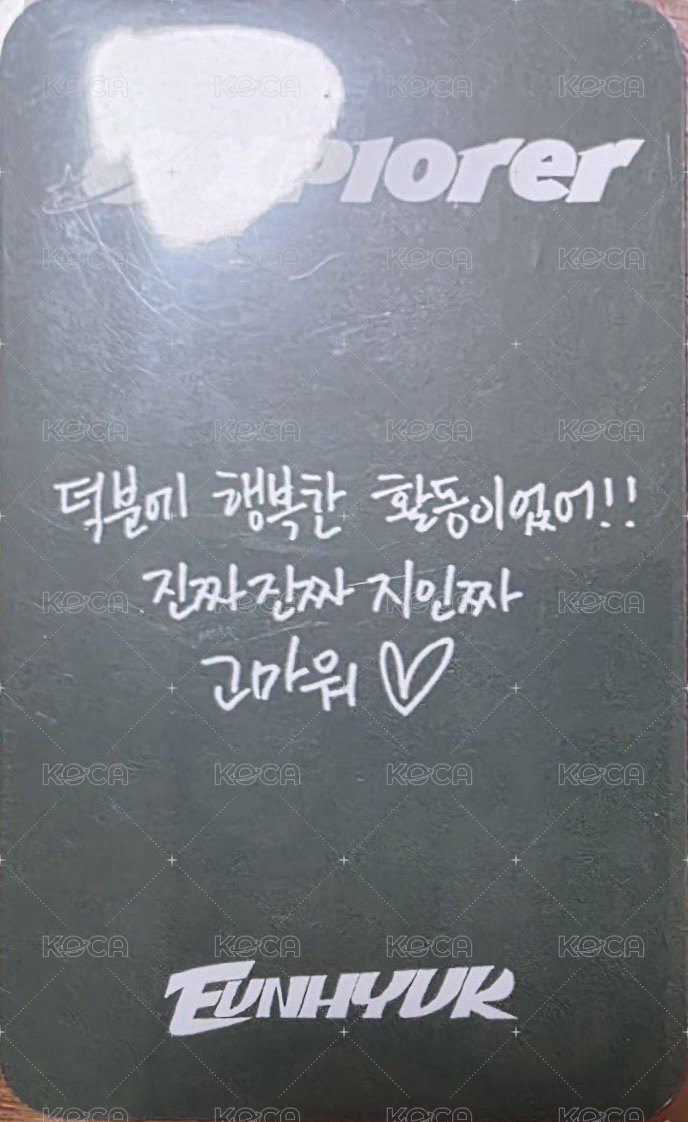 Explorer
덕분에 행복한 활동이었어!!
진짜진짜 지인짜
고마워 ♡
EUNHYUK
KOCA